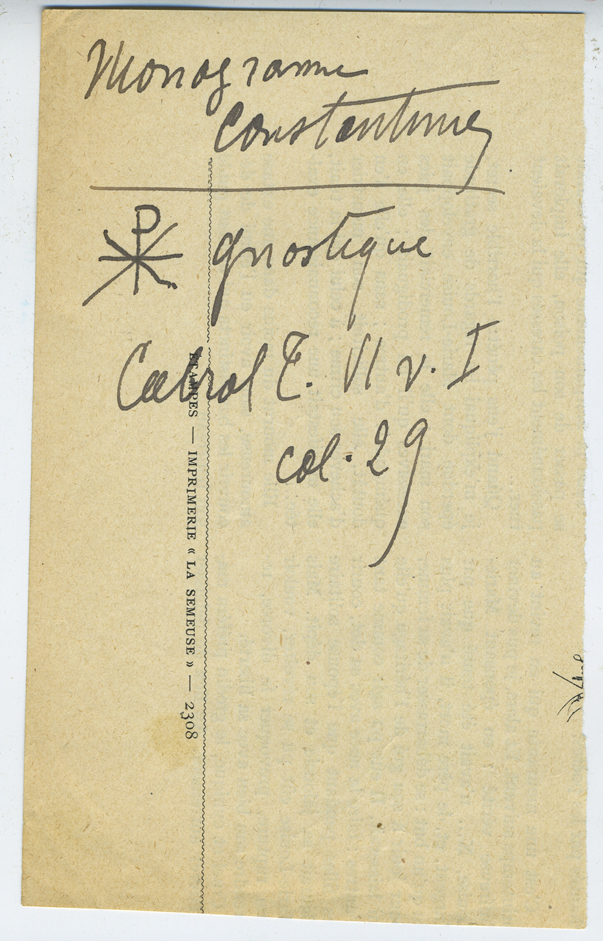 Monogramme
Constantinien
☧ gnostique
Cabrol T. VI v. I
col. 29
ETAMPES — IMPRIMERIE « LA SEMEUSE » — 2308